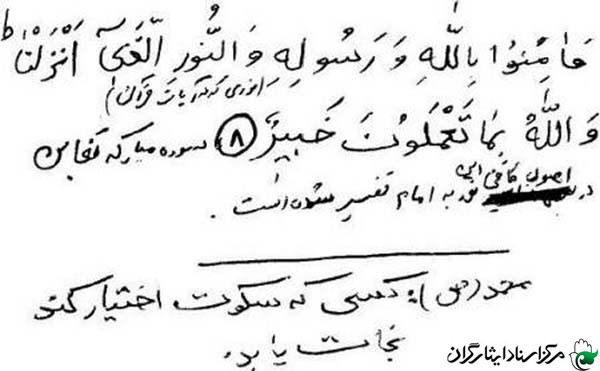 فَآمِنُوا بِاللَّهِ وَ رَسُولِهِ وَ النُّورِ الَّذِی أَنْزَلْنَا ط
نوری که آیات قرآن
وَ اللَّهُ بِمَا تَعْمَلُونَ خَبِيرٌ ﴿۸﴾ سوره مبارکه تغابن
در اصول کافی این نور به امام تفسیر شده است.
محمد(ص): کسی که سکوت اختیار کند
نجات یابد.
مرکز اسناد ایثارگران